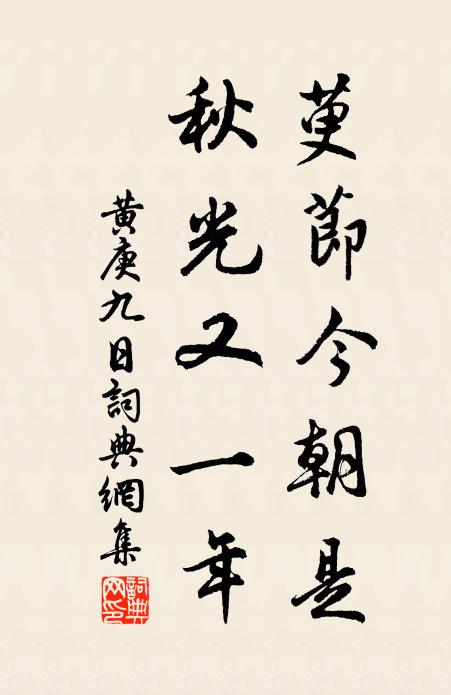 萸節今朝是
秋光又一年
黄庚九日詞典網集
詞典网印